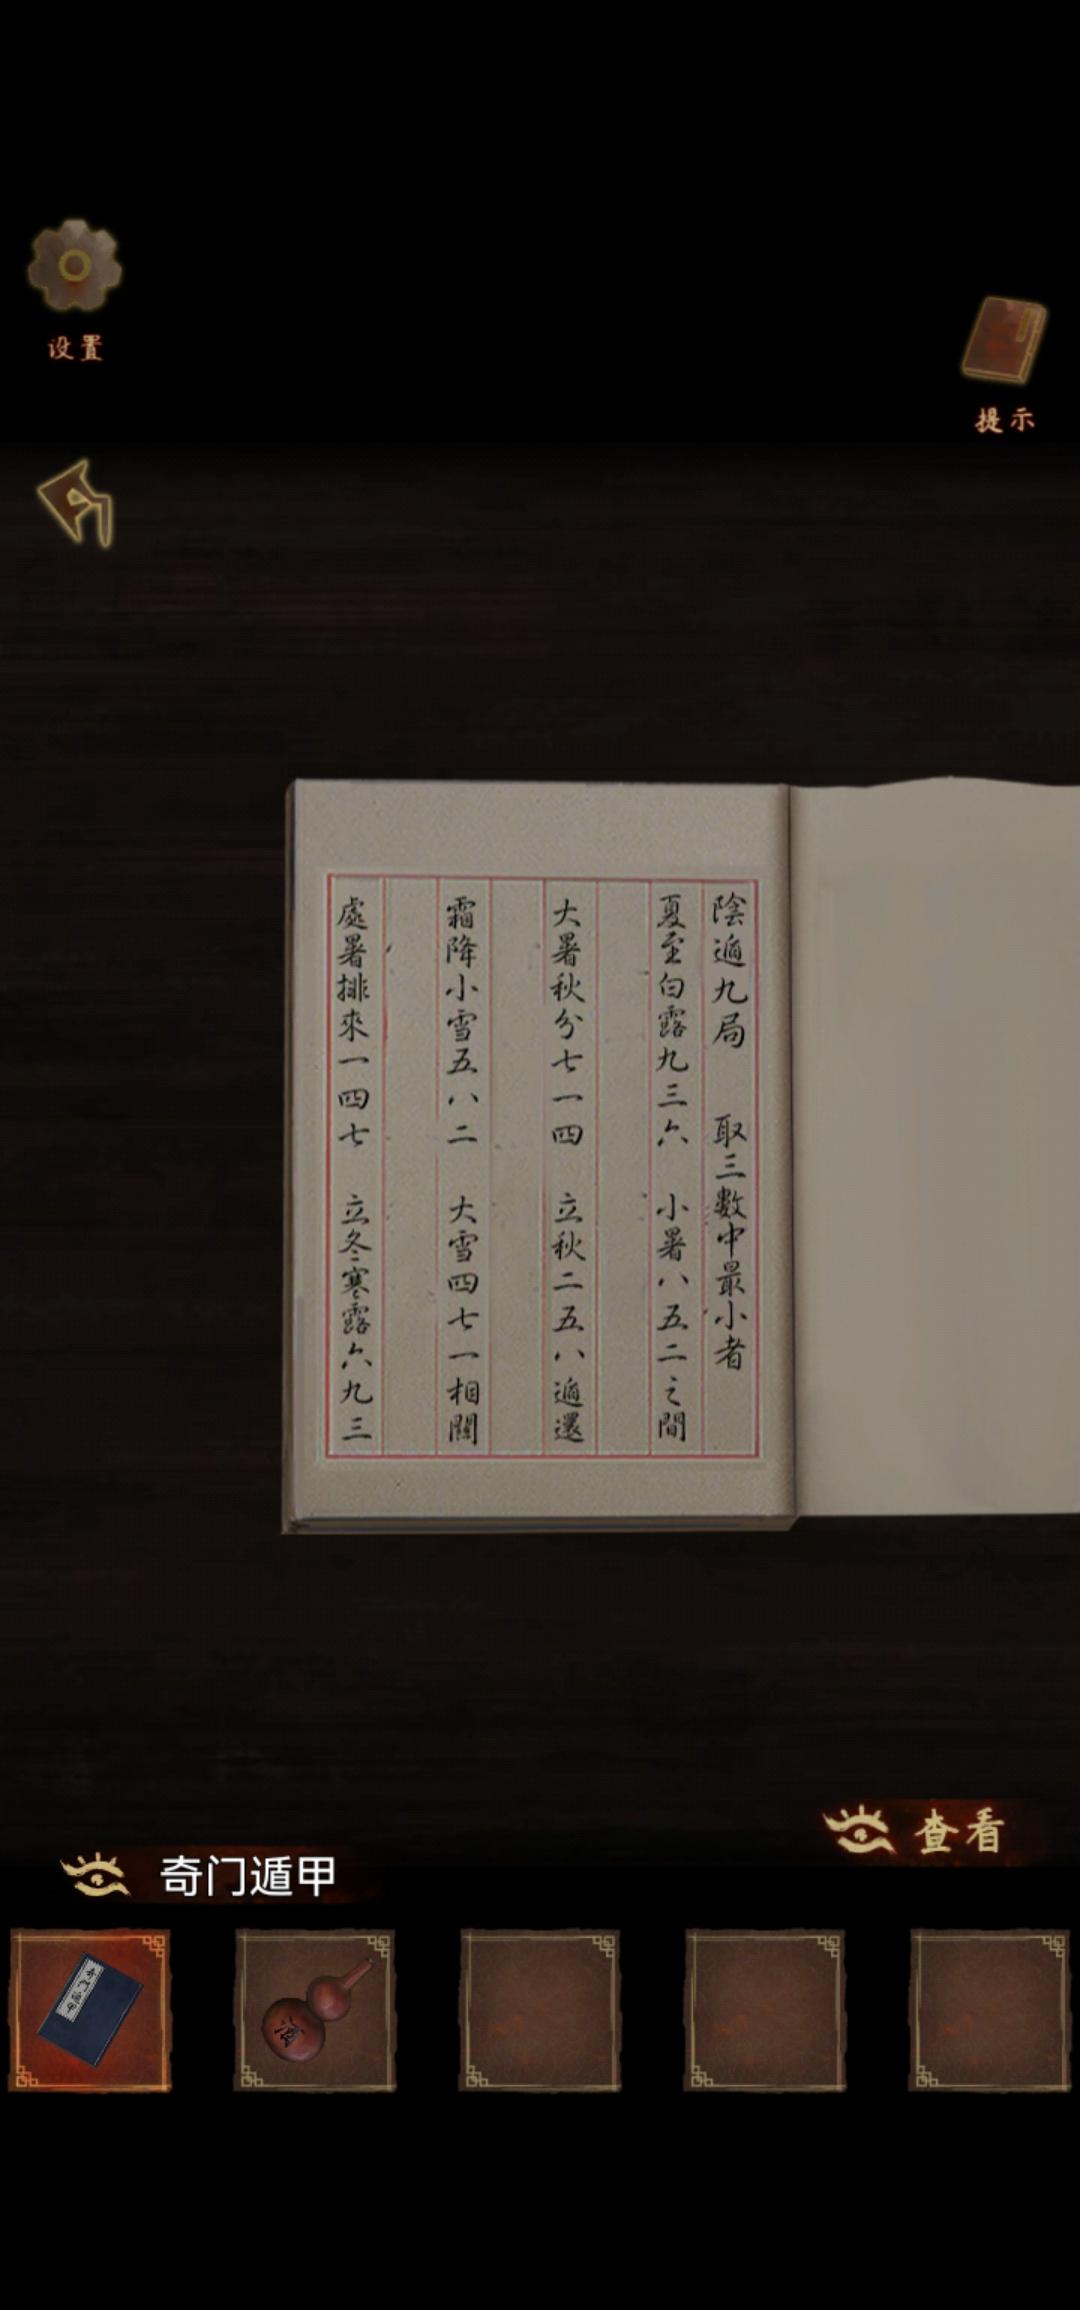 设置
提示
陰遁九局 取三數中最小者
夏至白露九三六 小暑八五二之間
大暑秋分七一四 立秋二五八遁還
霜降小雪五八二 大雪四七一相關
處暑排來一四七 立冬寒露六九三
查看
奇门遁甲
奇門遁甲
酒